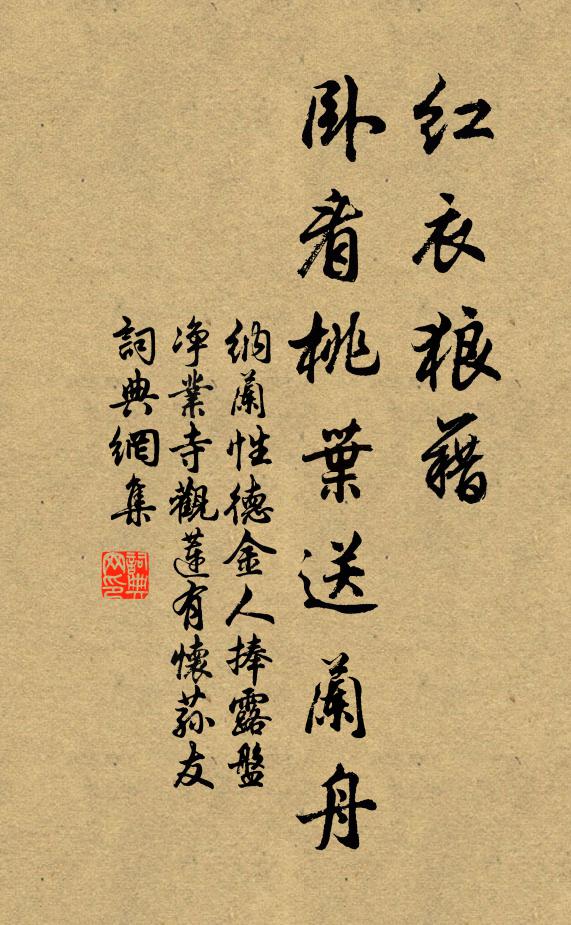 红衣狼藉
卧看桃葉送蘭舟
納蘭性德金人捧露盤
净業寺觀蓮有懷蓀友
詞典網集
詞典网印